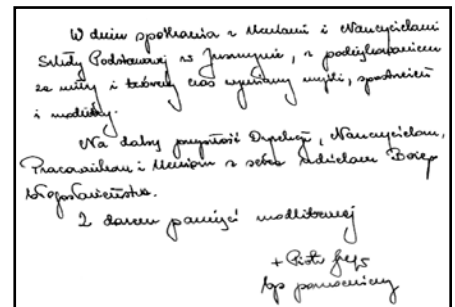 W dniu spotkania z Uczniami i Nauczycielami
Szkoły Podstawowej w Juszczynie, z podziękowaniem
za miły i twórczy czas wymiany myśli, spostrzeżeń
i modlitwy.
Na dalszą przyszłość Dyrekcji, Nauczycielom,
Pracownikom i Uczniom z serca udzielam Bożego
błogosławieństwa.
Z darem pamięci modlitewnej
+ Piotr Greger
bp pomocniczy